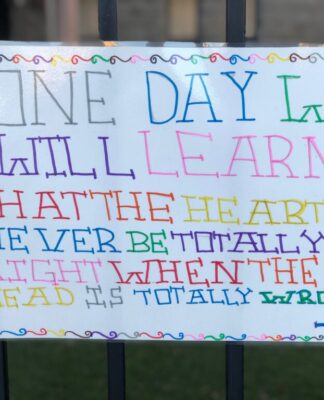 ONE DAY W
WILL LEARN
HAT THE HEART
EVER BE TOTALLY
IGHT WHEN THE
EAD IS TOTALLY WRO